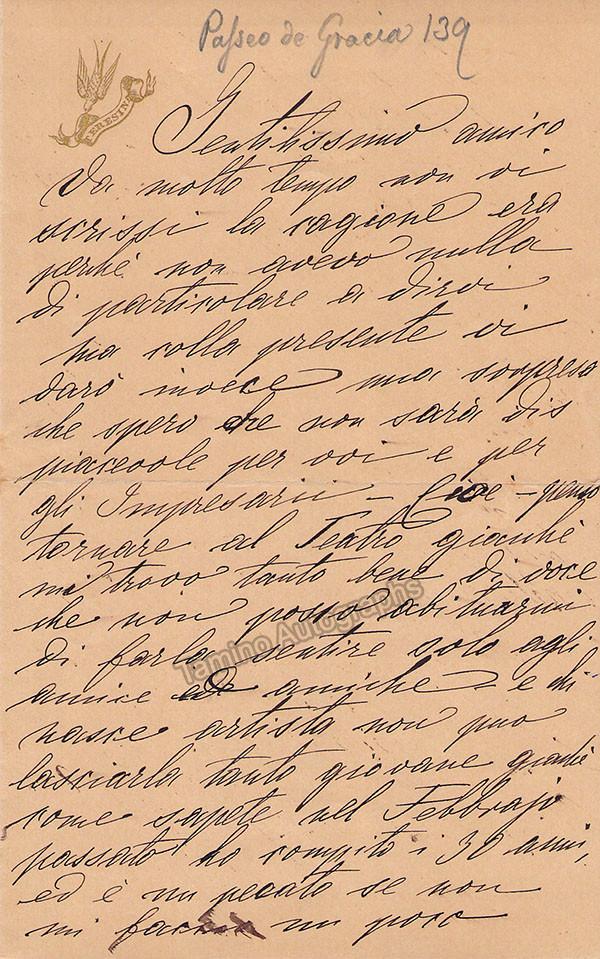 Passeo de Gracia 139
TERESINA
Gentilissimo amico
Da molto tempo non vi
scrissi la cagione era
perchè non avevo nulla
di particolare a dirvi
ma colla presente vi
darò invece una sorpresa
che spero che non sarà dis
piacevole per voi e per
gli Impresarii - Cioè - penso
tornare al Teatro giacchè
mi trovo tanto bene di voce
che non posso abituarmi
di farla sentire solo agli
amici ed amiche - e chi
nasce artista non può
lasciarla tanto giovane giacchè
come sapete nel Febbrajo
passato ho compito i 30 anni,
ed è un pecato se non
mi un poco
Tamino Autographs